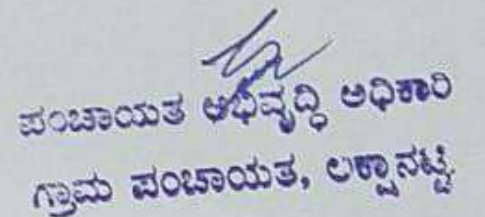 ಪಂಚಾಯತ ಅಭಿವೃದ್ಧಿ ಅಧಿಕಾರಿ
ಗ್ರಾಮ ಪಂಚಾಯತ, ಲಕ್ಷಾನಟ್ಟಿ.